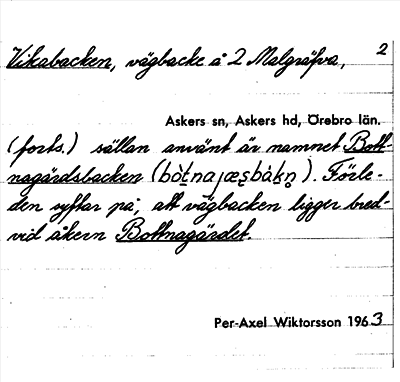 2
Vikabacken, vägbacke å 2 Malgräfva,
Askers sn, Askers hd, Örebro län.
(forts.) sällan använt är namnet Bott-
nagärdsbacken (bòt̠najæʂbàkn̥). Förle-
den syftar på, att vägbacken ligger bred-
vid åkern Bottnagärdet.
Per-Axel Wiktorsson 1963